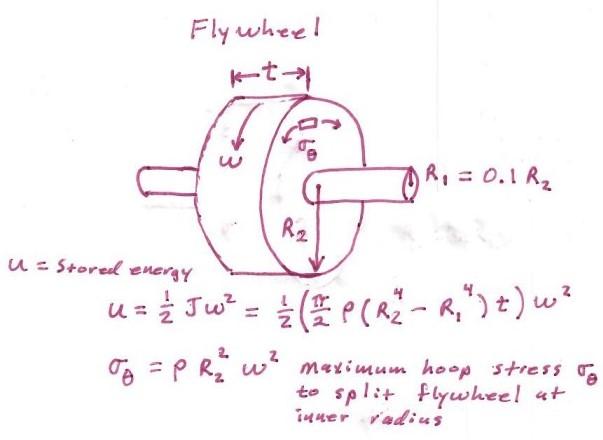 Flywheel
t
ω
σθ
R₁ = 0.1 R₂
R₂
u = Stored energy
u = ½ Jω² = ½ (π/2 ρ (R₂⁴ - R₁⁴) t) ω²
σθ = ρ R₂² ω² maximum hoop stress σθ
to split flywheel at
inner radius